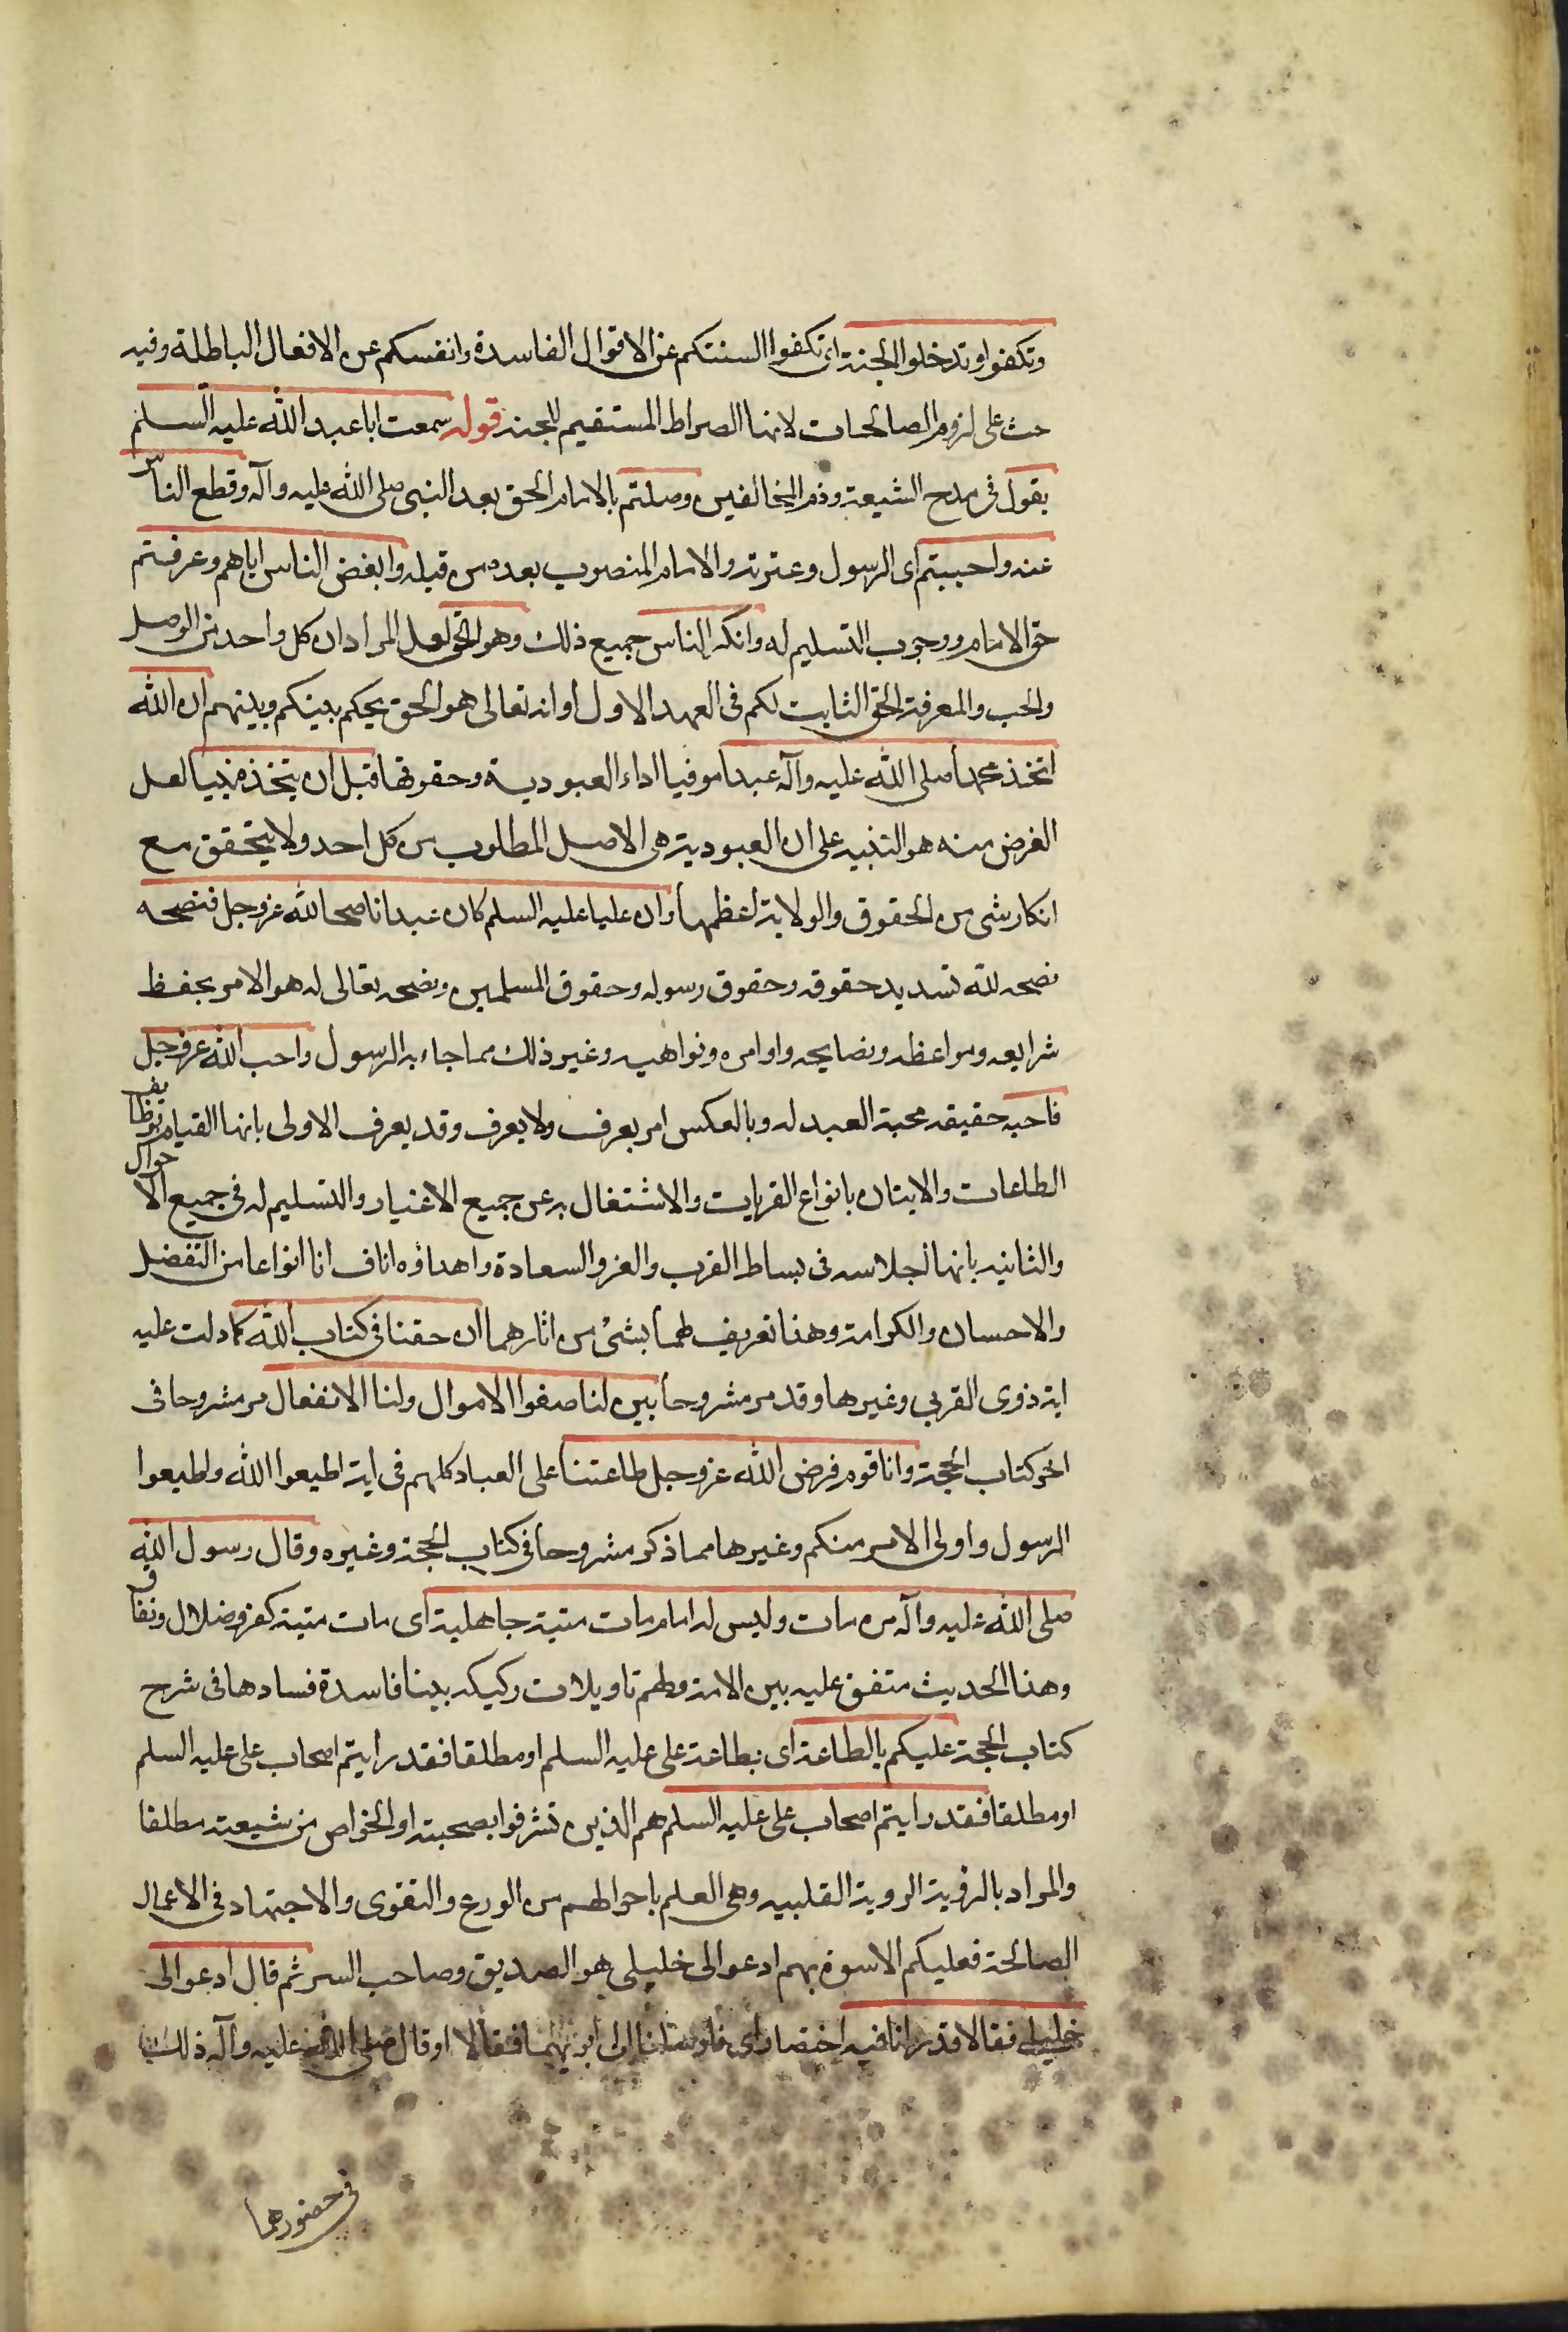 وتكفوا وتدخلوا الجنة اى تكفوا السنتكم عن الاقوال الفاسدة وانفسكم عن الافعال الباطلة وفيه
حث على لزوم الصالحات لانها الصراط المستقيم للجنة قوله سمعت ابا عبد الله عليه السلم
يقول فى مدح الشيعة وذم المخالفين وصلتم بالامام الحق بعد النبى صلى الله عليه وآله وقطع الناس
عنه واحببتم اى الرسول وعترته والامام المنصوب بعده من قبله وابغض الناس اياهم وعرفتم
حق الامام ووجوب التسليم له وانكر الناس جميع ذلك وهو الحق لعل المراد ان كل واحد من الوصل
والحب والمعرفة الحق الثابت لكم فى العهد الاول او انه تعالى هو الحق يحكم بينكم وبينهم ان الله
اتخذ محمدا صلى الله عليه وآله عبدا موفيا اداء العبودية وحقوقها قبل ان يتخذه نبيا لعل
الغرض منه هو التنبيه على ان العبودية هى الاصل المطلوب من كل احد ولا يتحقق مع
انكار شى من الحقوق والولاية اعظمها وان عليا عليه السلم كان عبدا ناصحا لله عز وجل فنصحه
نصحه لله تسديد حقوقه وحقوق رسوله وحقوق المسلمين ونصحه تعالى له هو الامر بحفظ
شرايعه ومواعظه ونصايحه واوامره ونواهيه وغير ذلك مما جاء به الرسول واحب الله عز وجل
فاحبه حقيقة محبة العبد له وبالعكس امر يعرف ولا يعرف وقد يعرف الاولى بانها القيام بوظايف
الطاعات والاتيان بانواع القربات والاشتغال به عن جميع الاغيار والتسليم له فى جميع الاحوال
والثانية بانها اجلاسه فى بساط القرب والعز والسعادة واهداؤه انافانا انواعا من التفضل
والاحسان والكرامة وهذا تعريف لهما بشئ من اثارهما ان حقنا فى كتاب الله كما دلت عليه
اية ذوى القربى وغيرها وقد مر مشروحا بين لنا صفوا الاموال ولنا الانفعال مر مشروحا فى
اخر كتاب الحجة وانا قوم فرض الله عز وجل طاعتنا على العباد كلهم فى اية اطيعوا الله واطيعوا
الرسول واولى الامر منكم وغيرها مما ذكر مشروحا فى كتاب الحجة وغيره وقال رسول الله
صلى الله عليه وآله من مات وليس له امام مات ميتة جاهلية اى مات ميتة كفر وضلال ونفاق
وهذا الحديث متفق عليه بين الامة ولهم تاويلات ركيكه بينا فاسدة فسادها فى شرح
كتاب الحجة عليكم بالطاعة اى بطاعة على عليه السلم او مطلقا فقد رايتم اصحاب على عليه السلم
او مطلقا فقد رايتم اصحاب على عليه السلم هم الذين تشرفوا بصحبته او الخواص من شيعته مطلقا
والمراد بالرؤية الروية القلبيه وهى العلم باحوالهم من الورع والتقوى والاجتهاد فى الاعمال
الصالحة فعليكم الاسوة بهم ادعوا لى خليلى هو الصديق وصاحب السر ثم قال ادعوا لى
خليلى فقالا قد رانا فيه اختصار اى فارسلنا الى ابويهما فقالا او قال صلى الله عليه وآله ذلك
فى حضورهما